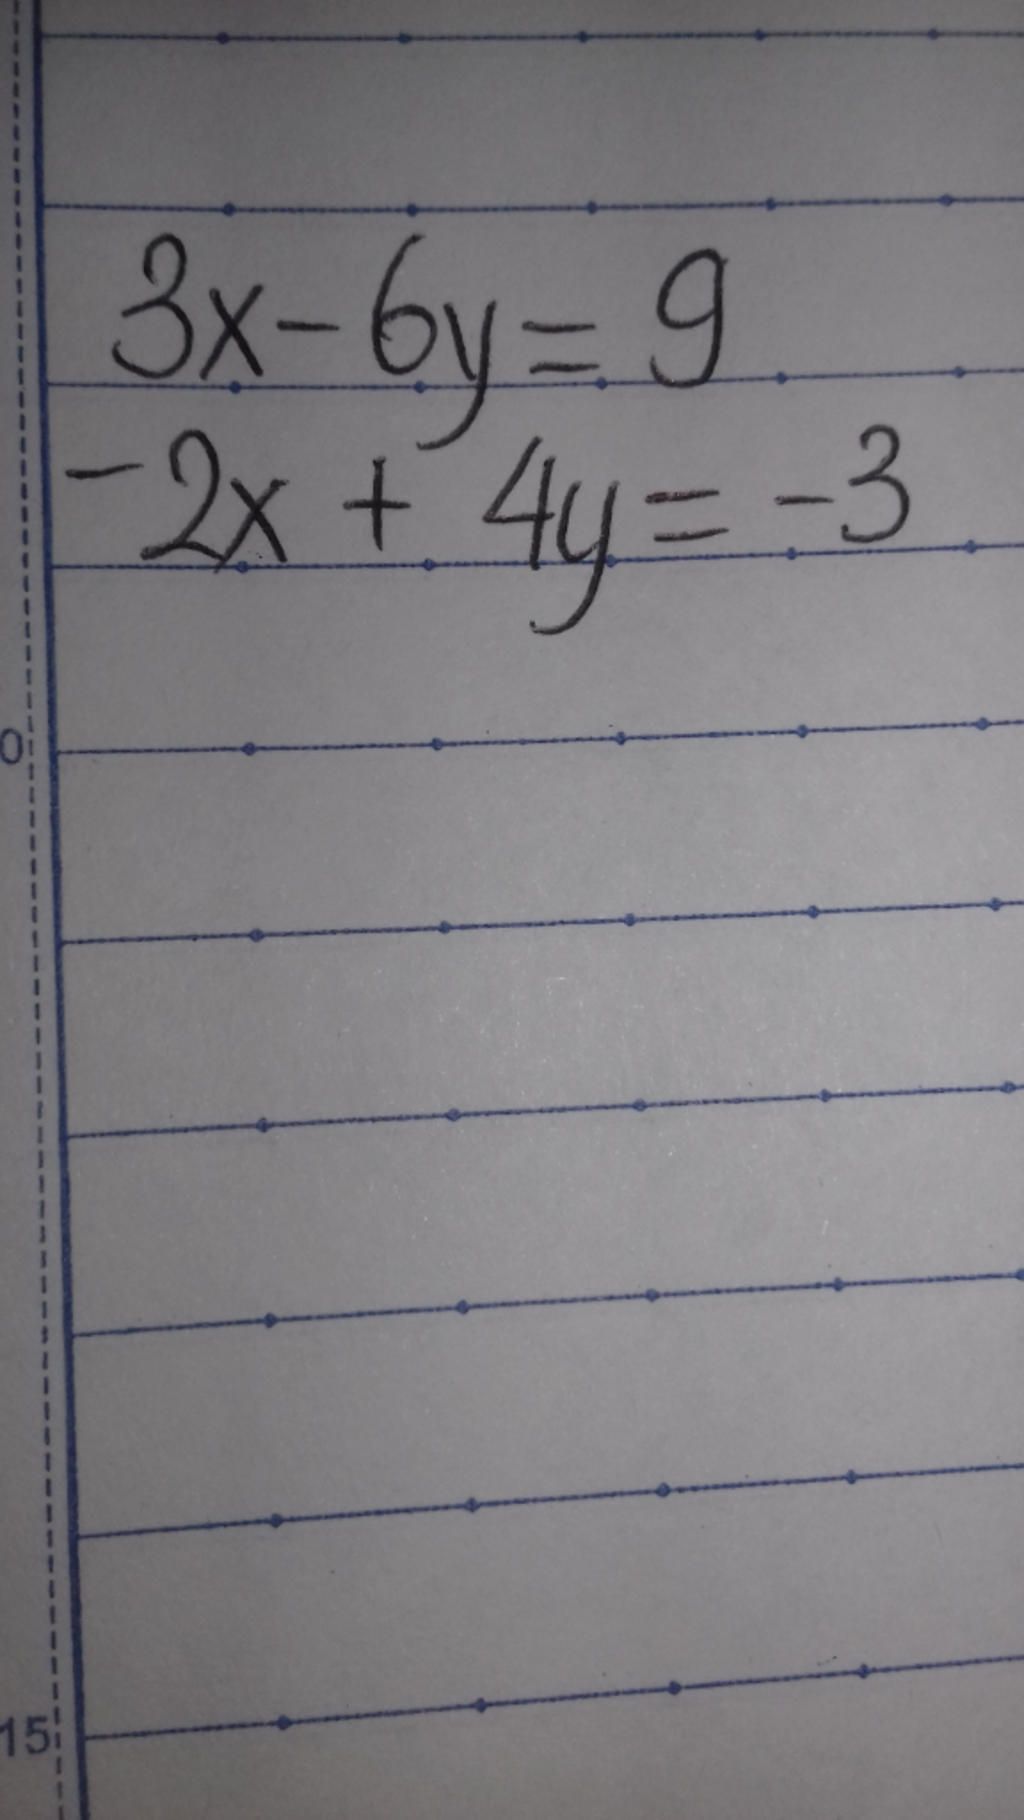 3x-6y=9
-2x + 4y=-3
0
15